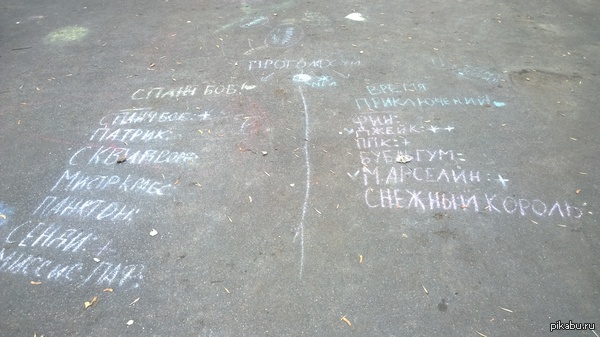 ПРОГОЛОСУЙ
СПАНЧ БОБ
СПАНЧ БОБ: +
ПАТРИК:
СКВИДВОРД:
МИСТР КРАБС
ПЛАНКТОН:
СЕНДИ: +
МАССИС ПАФ:
ВРЕМЯ
ПРИКЛЮЧЕНИЙ
ФИН:
ДЖЕЙК: + +
ППК: +
БУБЛЬГУМ:
МАРСЕЛИН: +
СНЕЖНЫЙ КОРОЛЬ:
pikabu.ru